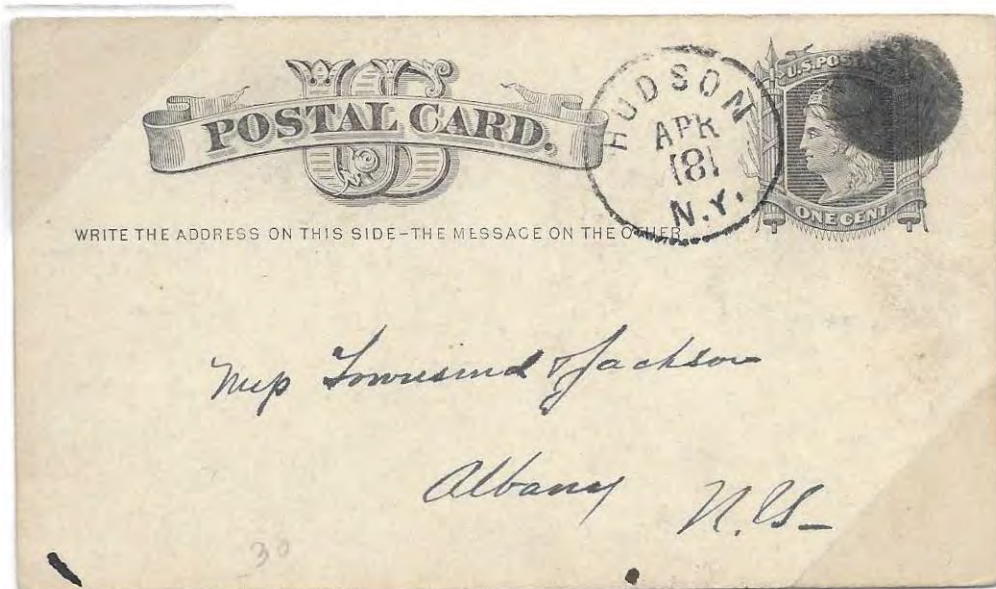 US
POSTAL CARD.
HUDSON
APR
18
N.Y.
U.S. POSTA
ONE CENT
WRITE THE ADDRESS ON THIS SIDE-THE MESSAGE ON THE OTHER
Mess Townsend & Jackson
Albany N.Y.
30